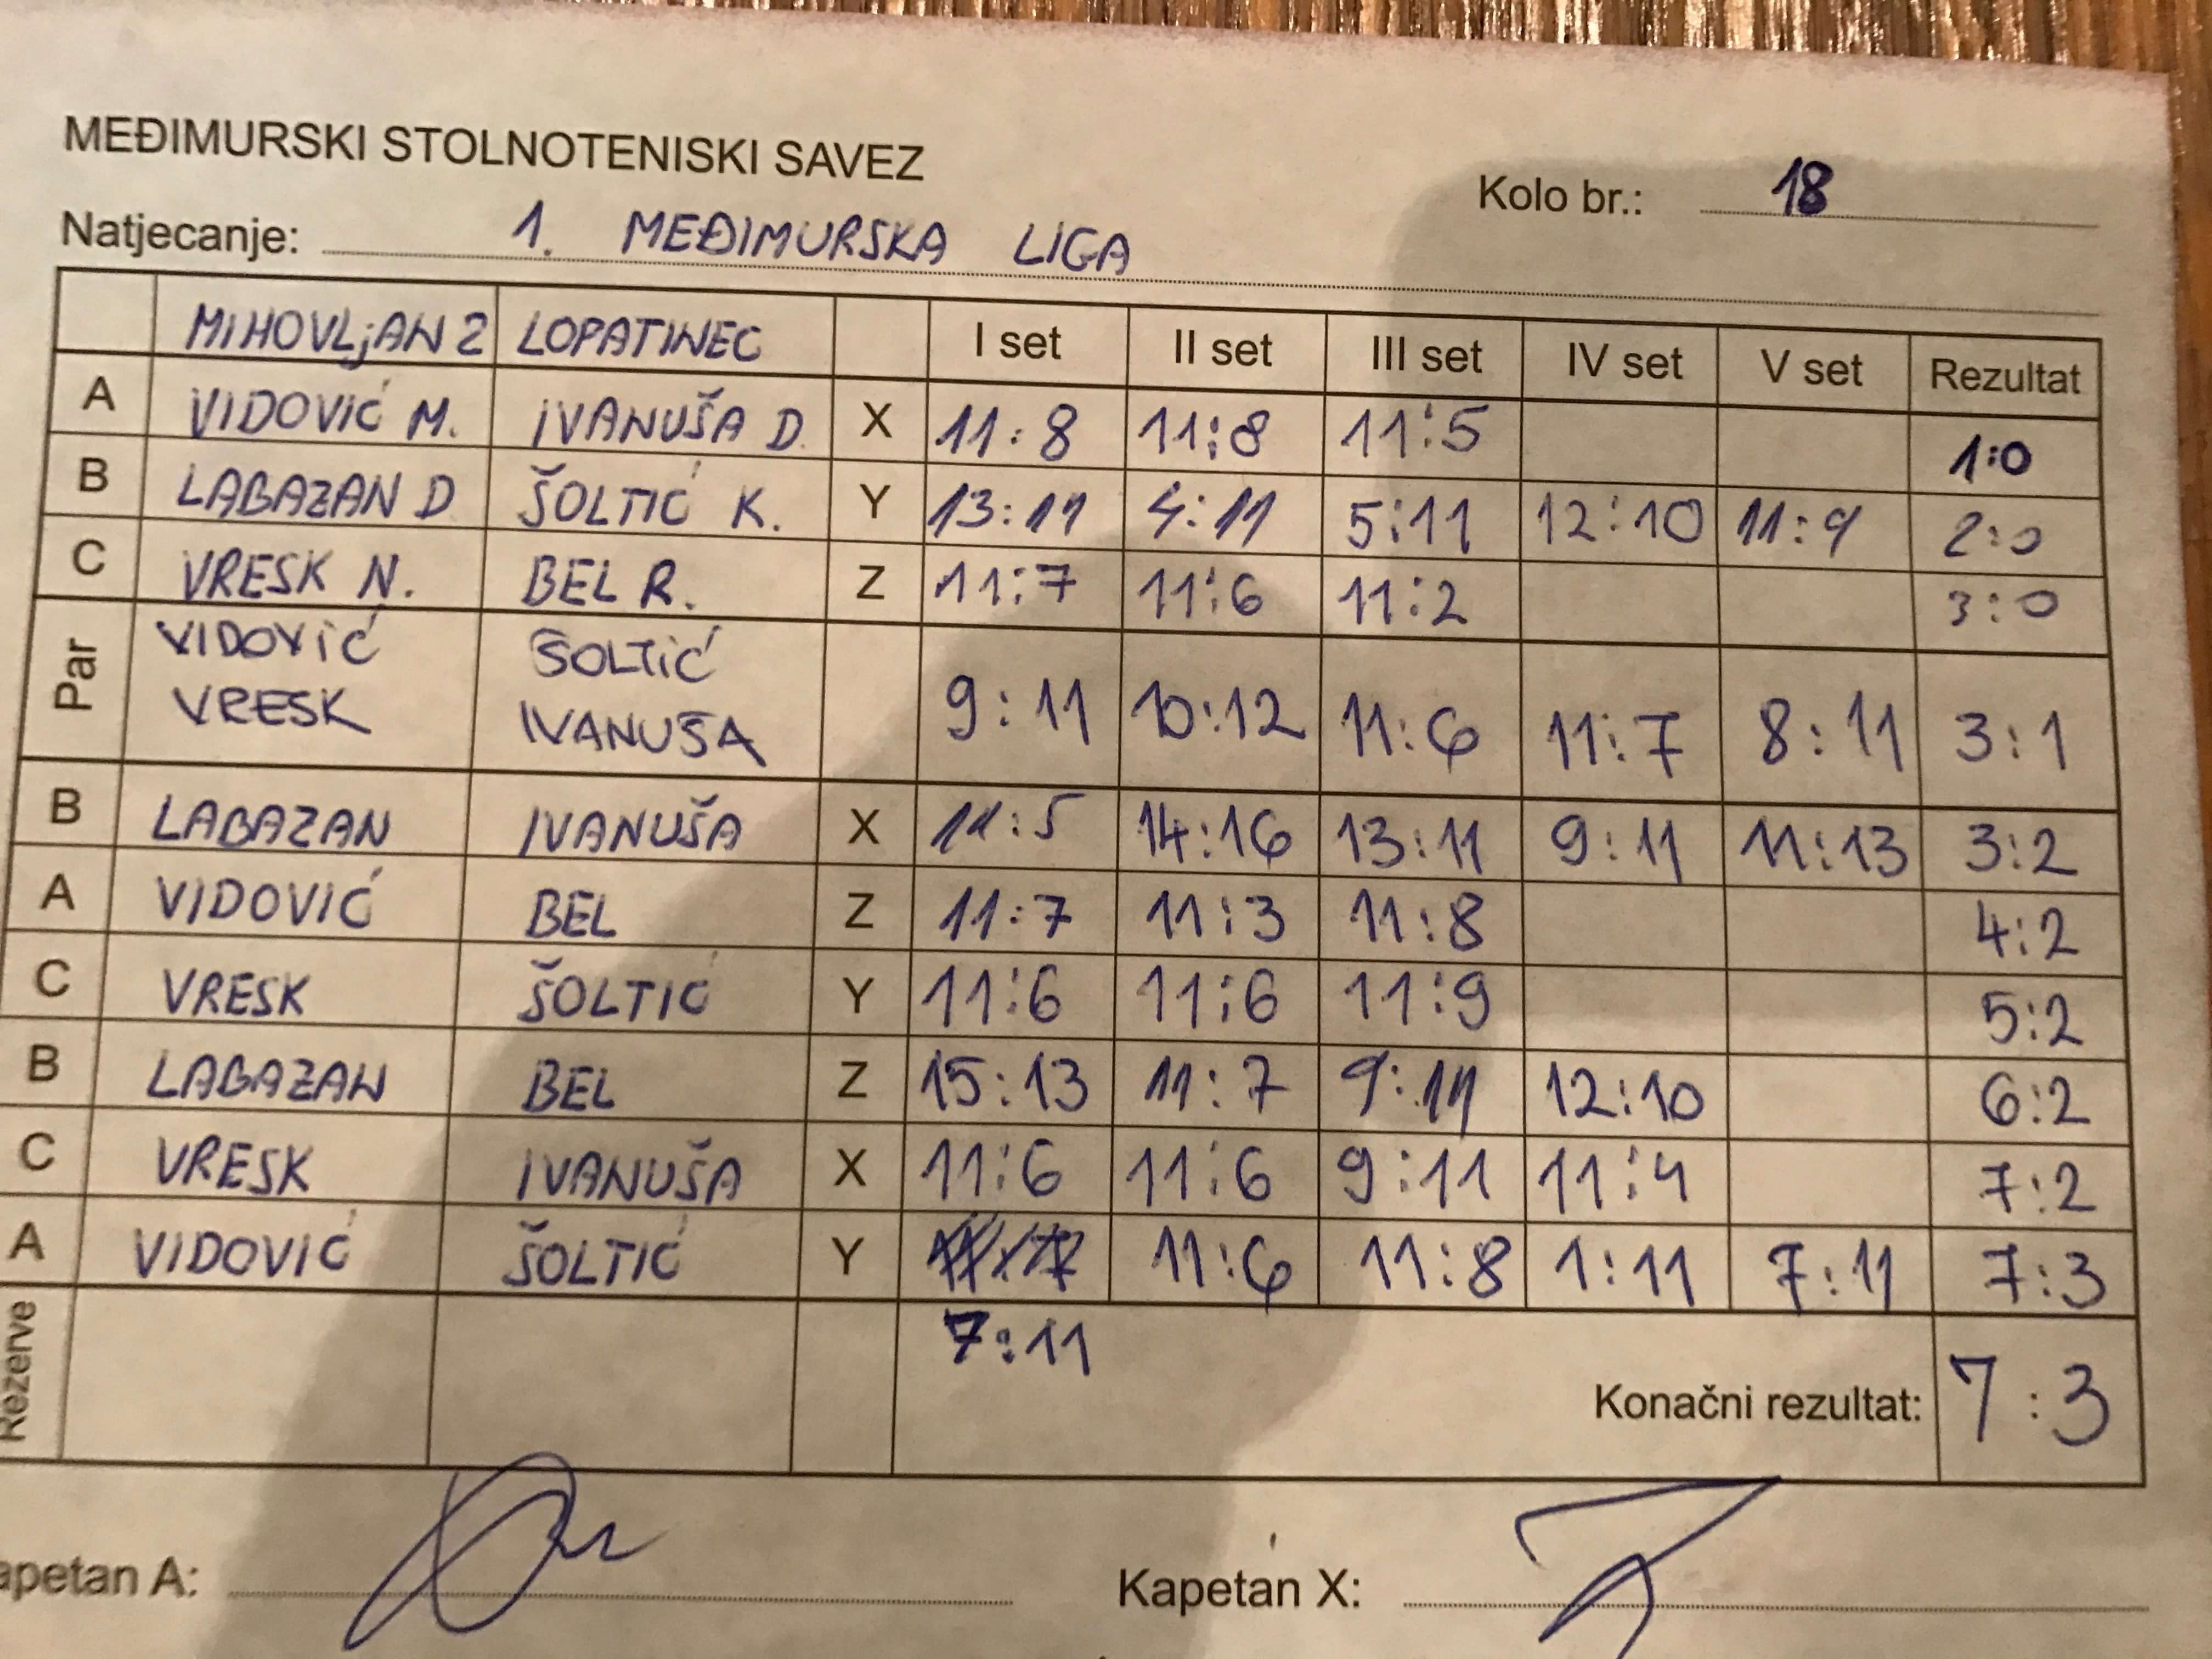 MEĐIMURSKI STOLNOTENISKI SAVEZ
Kolo br.: 18
Natjecanje: 1. MEĐIMURSKA LIGA
MIHOVLjAN 2 LOPATINEC I set II set III set IV set V set Rezultat
A VIDOVIĆ M. IVANUŠA D. X 11:8 11:8 11:5 1:0
B LABAZAN D ŠOLTIĆ K. Y 13:11 4:11 5:11 12:10 11:9 2:0
C VRESK N. BEL R. Z 11:7 11:6 11:2 3:0
Par VIDOVIĆ ŠOLTIĆ
VRESK IVANUŠA 9:11 10:12 11:6 11:7 8:11 3:1
B LABAZAN IVANUŠA X 11:5 14:16 13:11 9:11 11:13 3:2
A VIDOVIĆ BEL Z 11:7 11:3 11:8 4:2
C VRESK ŠOLTIĆ Y 11:6 11:6 11:9 5:2
B LABAZAN BEL Z 15:13 11:7 9:11 12:10 6:2
C VRESK IVANUŠA X 11:6 11:6 9:11 11:4 7:2
A VIDOVIĆ ŠOLTIĆ Y 11:6 11:8 1:11 7:11 7:3
Rezerve 7:11
Konačni rezultat: 7:3
apetan A: Kapetan X: